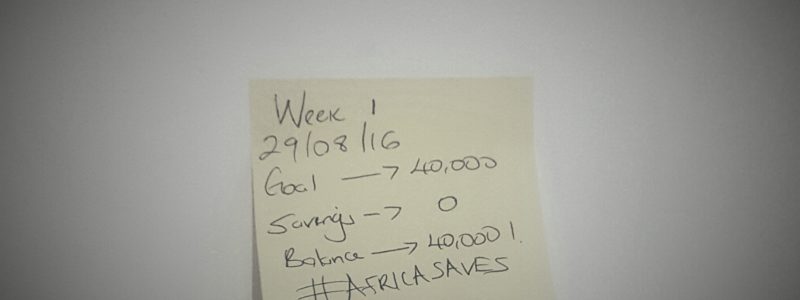 Week 1
29/08/16
Goal → 40,000
Savings → 0
Balance → 40,000!
#AFRICASAVES